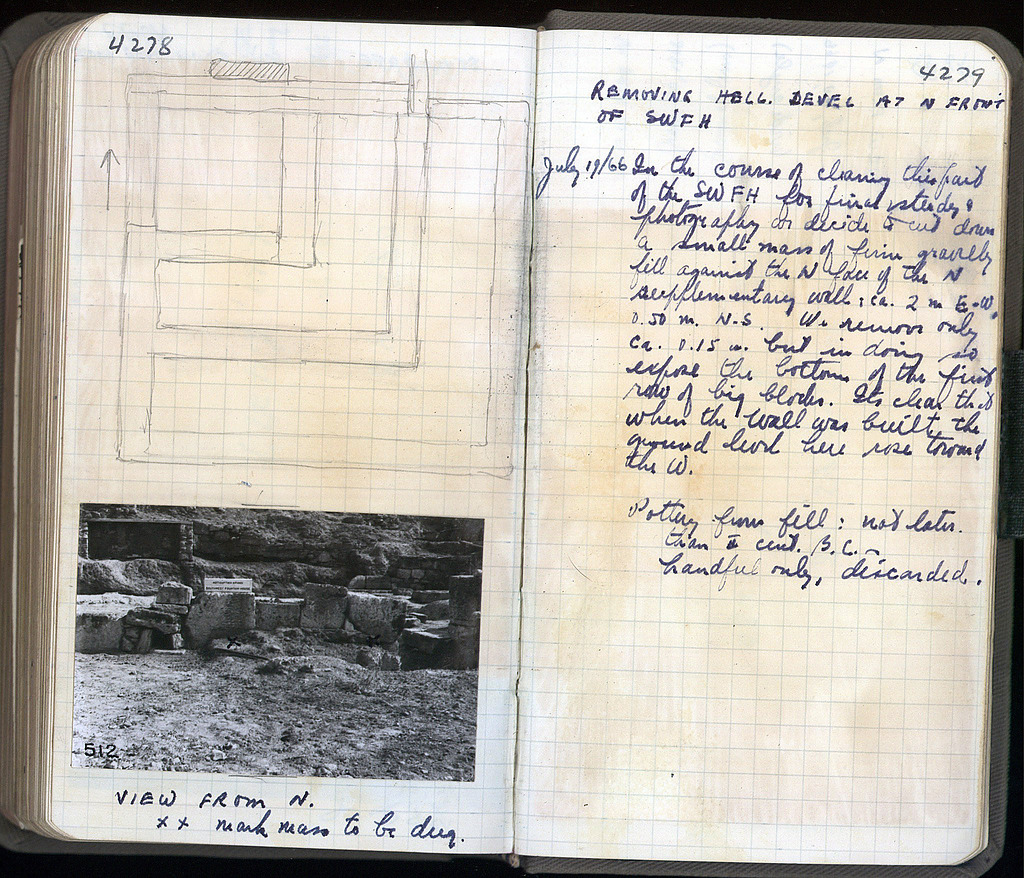 4278
512
VIEW FROM N.
x x mark mass to be dug.
4279
REMOVING HELL. DEVEL AT N FRONT
OF SWFH
July 19/66 In the course of cleaning this part
of the SWFH for final study &
photography we decide to cut down
a small mass of firm gravelly
fill against the N face of the N
supplementary wall: ca. 2 m E-W,
0.50 m. N-S. We remove only
ca. 0.15 m. but in doing so
expose the bottom of the first
row of big blocks. Its clear that
when the wall was built, the
ground level here rose toward
the W.
Pottery from fill: not later
than II cent. B.C. -
handful only, discarded.